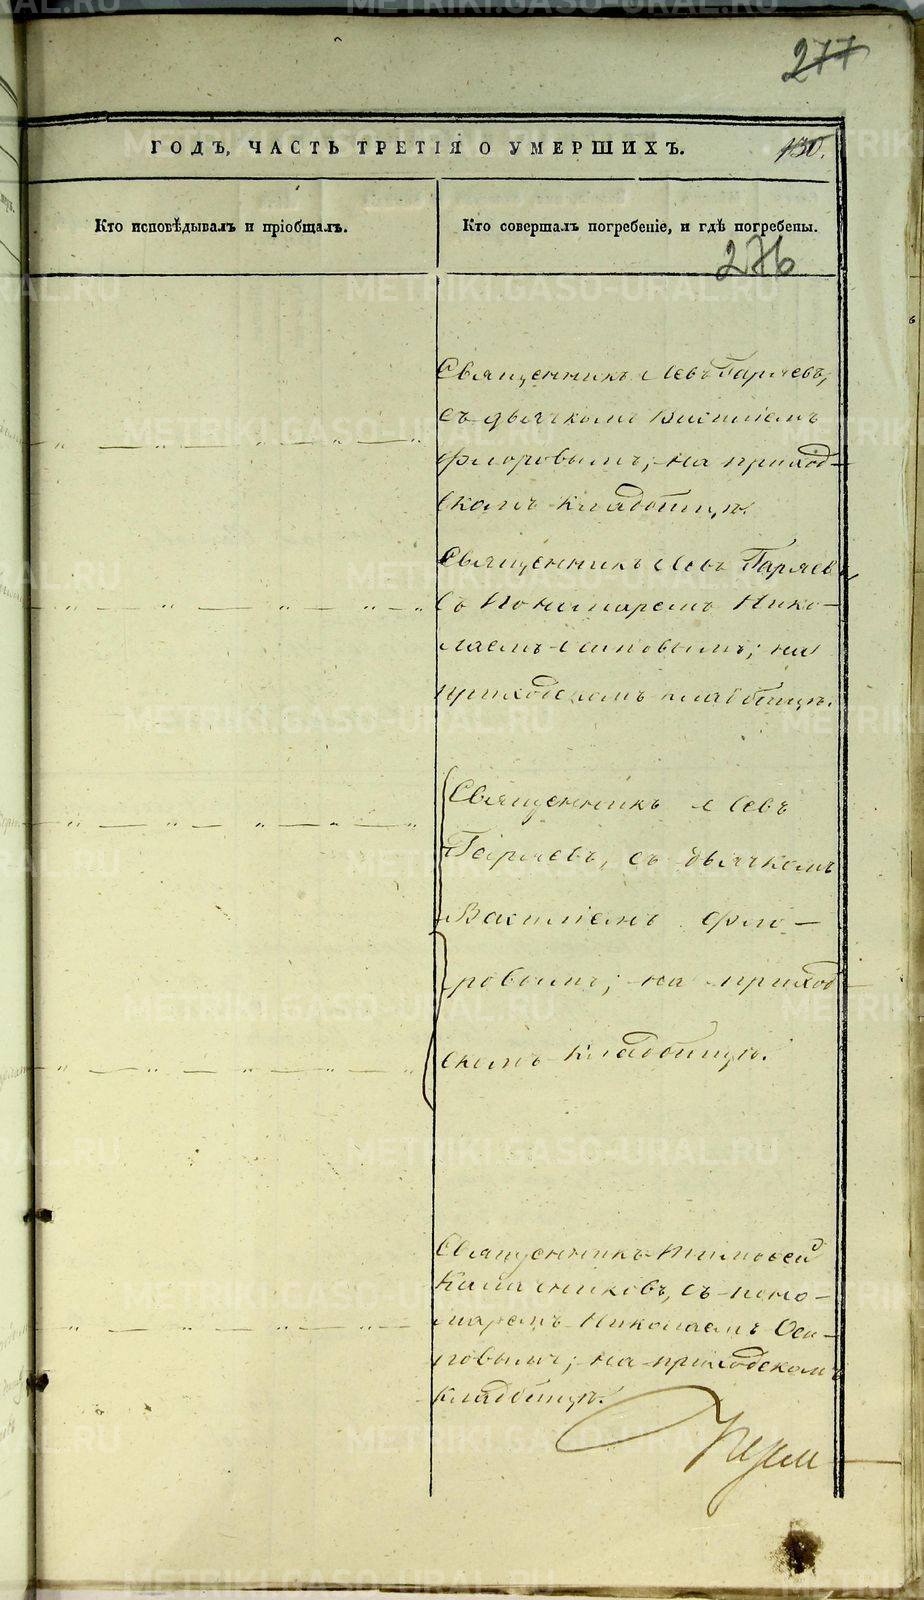 277
ГОДЪ, ЧАСТЬ ТРЕТІЯ О УМЕРШИХЪ. 130.
Кто исповѣдывалъ и пріобщалъ.
Кто совершалъ погребеніе, и гдѣ погребены.
276
Священникъ Левъ Гаряевъ,
съ дьячкомъ Василіемъ
Флоровымъ; на приход-
скомъ кладбищѣ.
Священникъ Левъ Гаряевъ
съ Пономаремъ Нико-
лаемъ Осиповымъ; на
приходскомъ кладбищѣ.
Священникъ Левъ
Гаряевъ, съ дьячкомъ
Василіемъ Фло-
ровымъ; на приход
скомъ кладбищѣ.
Священникъ Тимоѳей
Калашниковъ, съ поно-
маремъ Николаемъ Оси-
повымъ; на приходскомъ
кладбищѣ.
METRIKI.GASO-URAL.RU